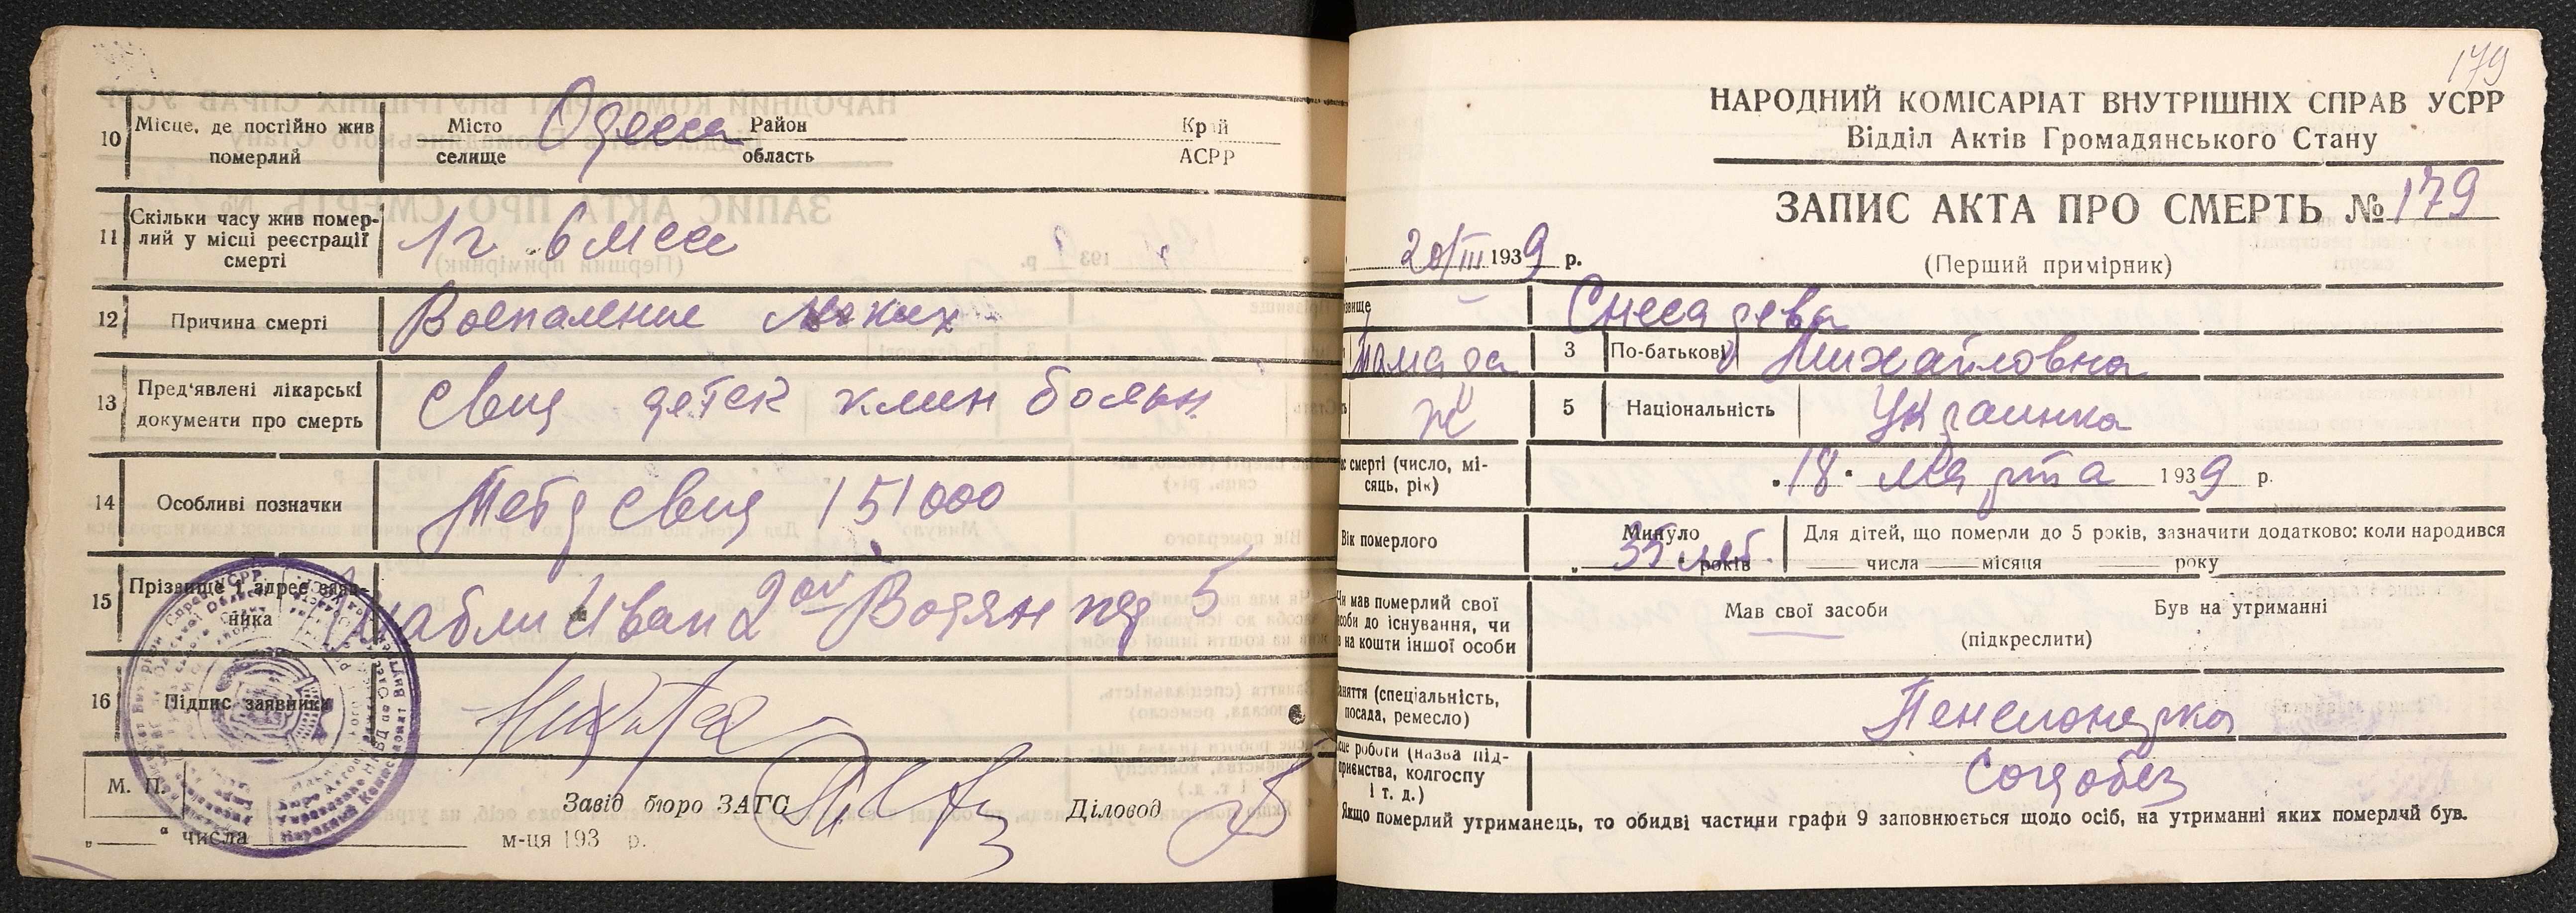 10 Місце, де постійно жив померлий
Місто селище Одесса Район область Край АСРР
11 Скільки часу жив помер-
лий у місці реєстрації
смерті
1 г. 6 мес
12 Причина смерті Воспаление легких
13 Пред'явлені лікарські
документи про смерть
Свид детск клин больн
14 Особливі позначки
Метр свид 151000
15 Прізвище і адрес заяв-
ника
Иван 2ой Водян пер 5
16 Підпис заявника
М. П.
Завід бюро ЗАГС Діловод
„ “ числа м-ця 193 р.
179
НАРОДНИЙ КОМІСАРІАТ ВНУТРІШНІХ СПРАВ УСРР
Відділ Актів Громадянського Стану
ЗАПИС АКТА ПРО СМЕРТЬ № 179
20/III 1939 р.
(Перший примірник)
3 По-батькові Михайловна
ж 5 Національність Украинка
с смерті (число, мі-
сяць, рік)
18 марта 1939 р.
Вік померлого
Минуло
„ 35 лет років
Для дітей, що померли до 5 років, зазначити додатково: коли народився
числа місяця року
Чи мав померлий свої
соби до існування, чи
в на кошти іншої особи
Мав свої засоби Був на утриманні
(підкреслити)
аняття (спеціальність,
посада, ремесло)
Пенсионерка
сце роботи (назва під-
приємства, колгоспу
і т. д.)
Соцобез
Якщо померлий утриманець, то обидві частини графи 9 заповнюється щодо осіб, на утриманні яких померлий був.